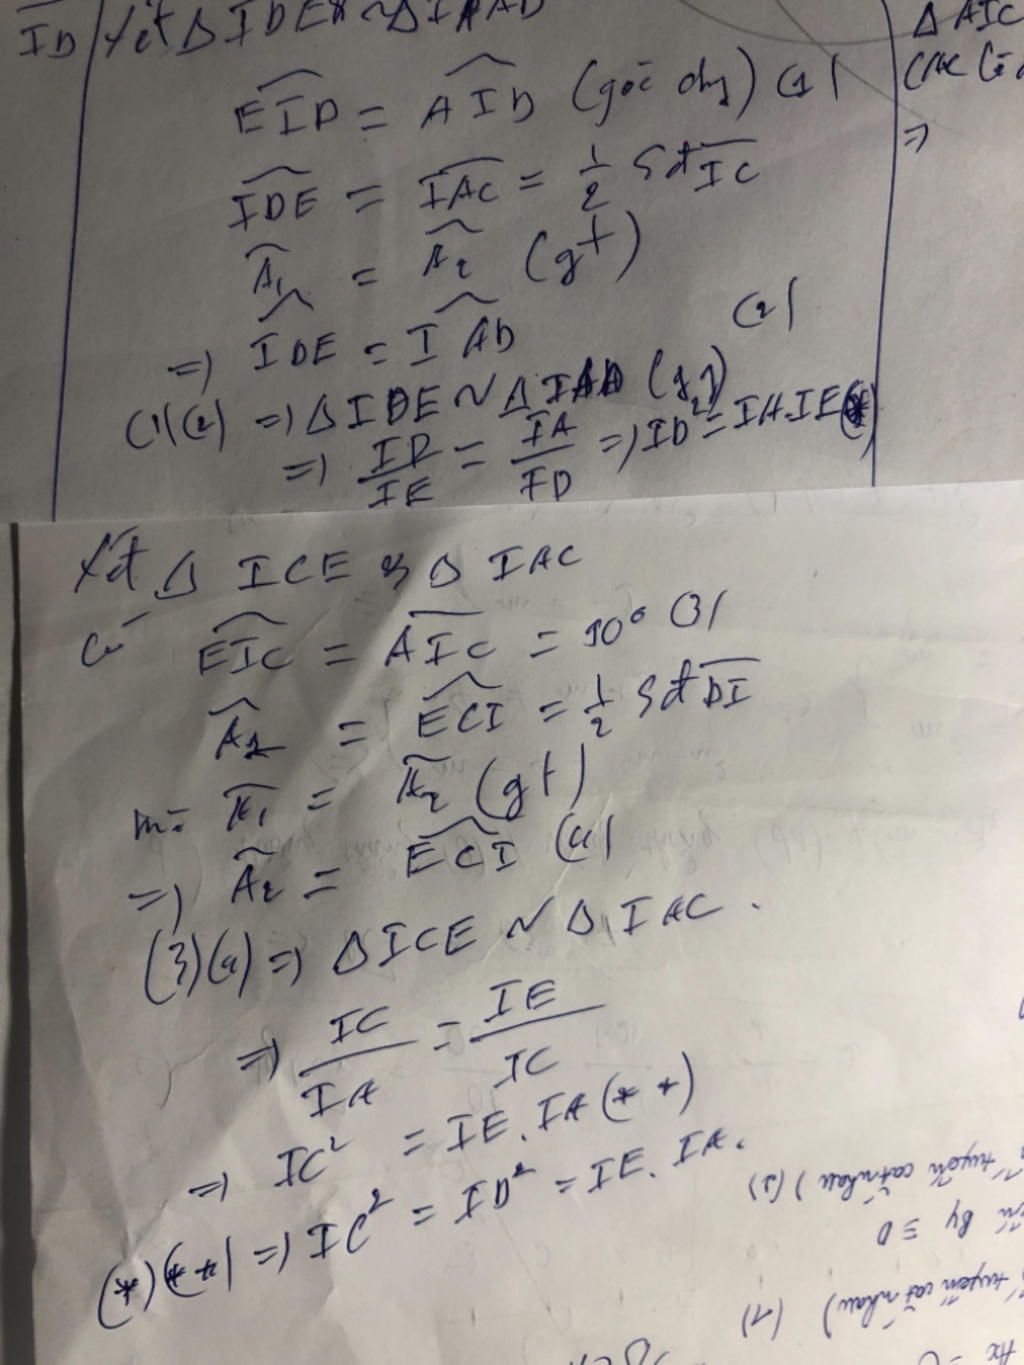 ID
Xét Δ IDE ~ Δ IAD
Δ AIC
EID = AID (góc chg) (1)
=>
IDE = IAC = 1/2 Sđ IC
A₁ = A₂ (gt)
=> IDE = IAD (2)
(1)(2) => Δ IDE ~ Δ IAD (g.g)
=> ID/IE = IA/ID => ID² = IA.IE (*)
Xét Δ ICE & Δ IAC
Có EIC = AIC = 90° (3)
A₁ = ECI = 1/2 Sđ DI
mà A₁ = A₂ (gt)
=> A₂ = ECI (4)
(3)(4) => Δ ICE ~ Δ IAC.
=> IC/IA = IE/IC
=> IC² = IE.IA (**)
(*)(**) => IC² = ID² = IE.IA.
tuyến cắt nhau) (2)
By ≡ D
tuyến cắt nhau) (1)
Ax = C